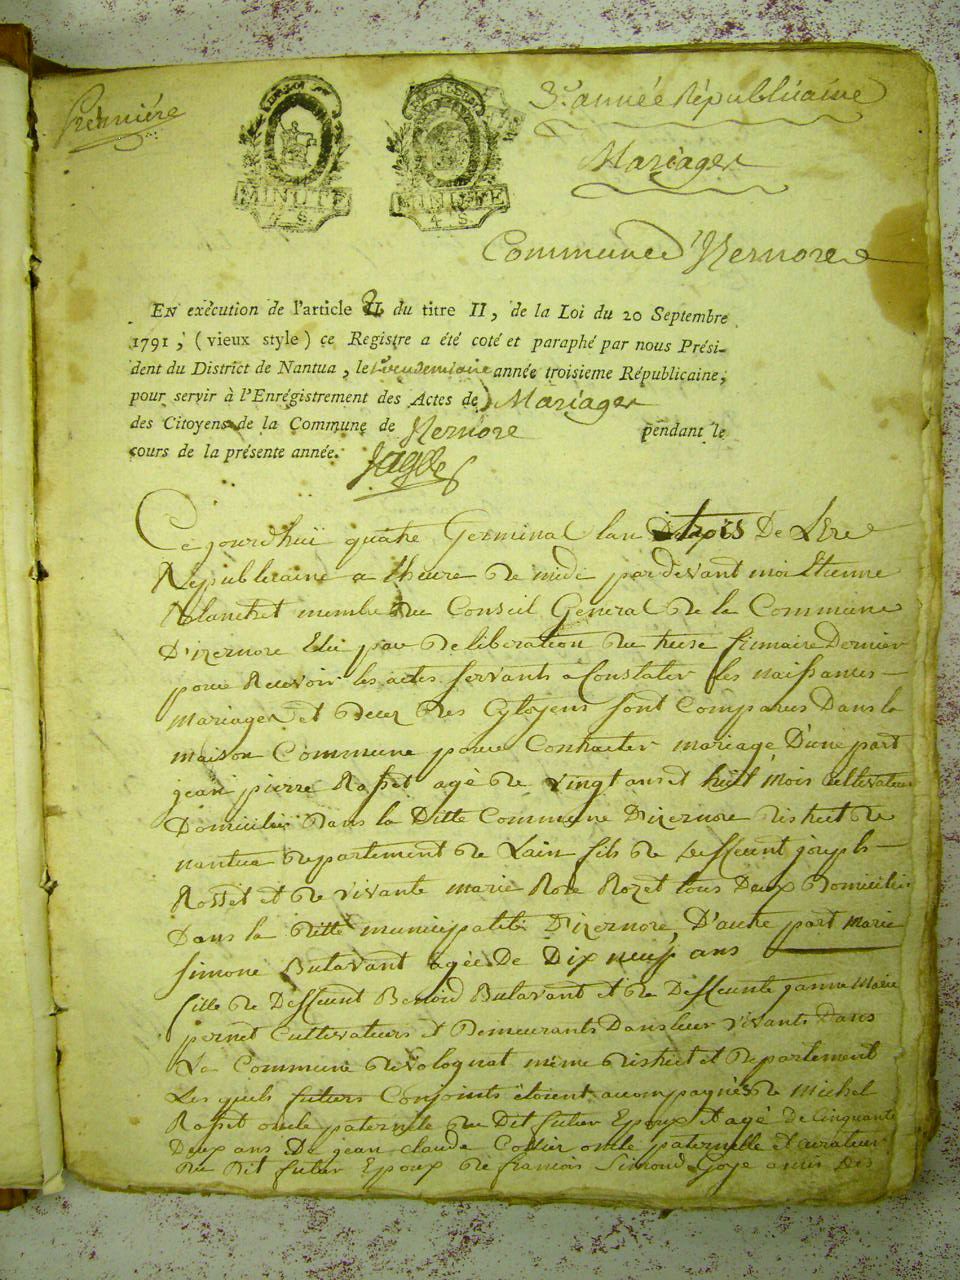 Premiére
3e. année Républicaine
Mariages
MINUTE
MINUTE
4 S.
Commune d'Izernore
EN exécution de l'article 2 du titre II, de la Loi du 20 Septembre
1791, (vieux style) ce Registre a été coté et paraphé par nous Prési-
dent du District de Nantua, le année troisieme Républicaine,
pour servir à l'Enrégistrement des Actes de Mariages
des Citoyens de la Commune de Izernore pendant le
cours de la présente année.
Ce jourdhuï quatre Germinal lan trois De L'Ere
Republicaine a lheure de midi pardevant moi Etienne
Blanchet membre du Conseil General de la Commune
D'izernore Elû par deliberation du treise frimaire Dernier
pour Recevoir les actes servants a Constater les naissances
mariages et deces des Cytoyens sont Comparus Dans la
maison Commune pour Contracter mariage D'une part
jean pierre Rosset agé de vingt ans et huit mois cultivateur
Domicilié Dans la Ditte Commune D'izernore district de
nantua departement de Lain fils de deffeunt joseph
Rosset et de vivante marie Rose Rozet tous Deux Domiciliés
Dans la ditte municipalité D'izernore, D'autre part Marie
Simone Butavant agée De Dix neuf ans
fille de Deffeunt Benoid Butavant et de Deffeunte janne Marie
pernet Cultivateurs et Demeurants Dans leur vivants Dans
La Commune de volognat même district et departement
Les quels futurs Conjoints étoient accompagnés de michel
Rosset oncle paternelle du Dit futur Epoux et agé de Cinquante
Deux ans De jean claude oncle paternelle et curateur
du Dit futur Epoux de francois Simond Goye amis des